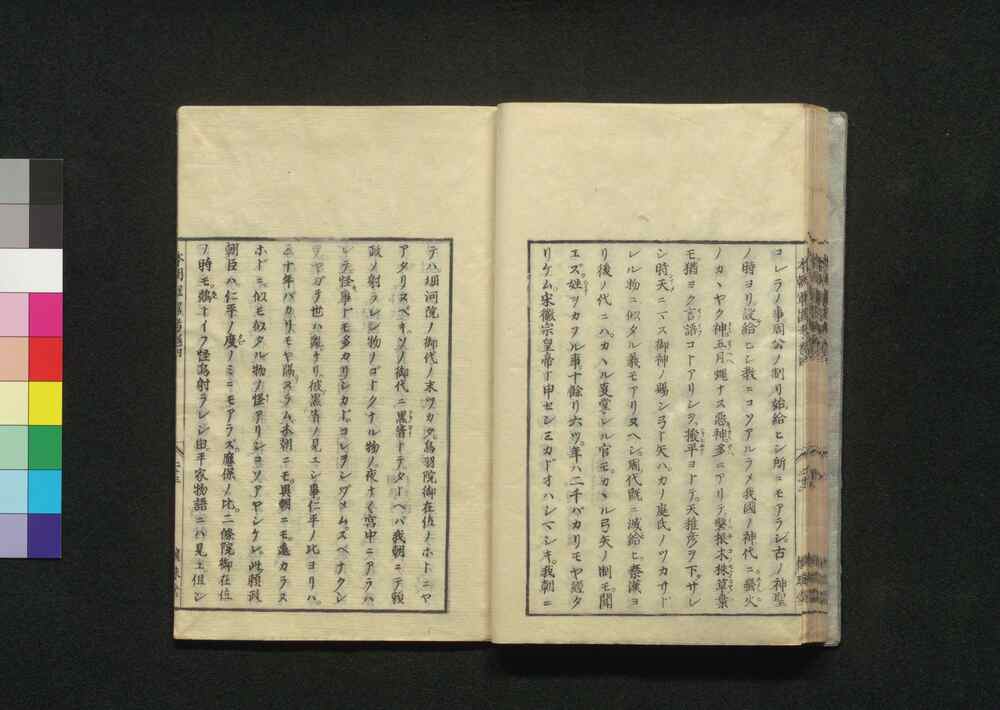 コレラノ事周公ノ制リ始給ヒシ所ニモアラジ古ノ神聖
ノ時ヨリ設給ヒシ教ニコソアルラメ我國ノ神代ニ螢火
ノカヽヤク神五月蠅ナス惡神多ニアリテ磐根木株草葉
モ猶ヨク言語コトアリシヲ撥平ヨトテ天稚彦ヲ下サレ
シ時天ニマス御神ノ賜シ弓ト矢ハカノ庭氏ノツカサド
レル物ニ似タル義モアリヌヘシ周代既ニ滅給ヒ秦漢ヨ
リ後ノ代ニハカヽル官モカヽル弓矢ノ制モ聞
エズ姓ヲカフル事十餘リ六ツ年ハ二千バカリモヤ經タ
リケム宋徽宗皇帝ト申セシミカドオハシマシキ我朝ニ
テハ堀河院ノ御代ノ末ツカタ鳥羽院御在位ノホトニヤ
アタリヌベキソノ御代ニ黒眚トテタトヘバ我朝ニテ頼
政ノ射ラレシ物ノゴトクナル物ノ夜ナ〳〵宮中ニアラハ
レテ怪事トモ多カリシカドコレヲシヅメム スベナクシ
テヤガテ世ハ亂ケリ彼黒眚ノ見エシ事仁平ノ比ヨリハ
五十年バカリモヤ隔ヌラム本朝ニモ異朝ニモ遠カラヌ
ホドニ似モ似タル物ノ怪アリシコソアヤシケレ此頼政
朝臣ハ仁平ノ度ノミニモアラズ應保ノ比二條院御在位
ノ時モ鵼トイフ怪鳥射ラレシ由平家物語ニハ見ユ但シ